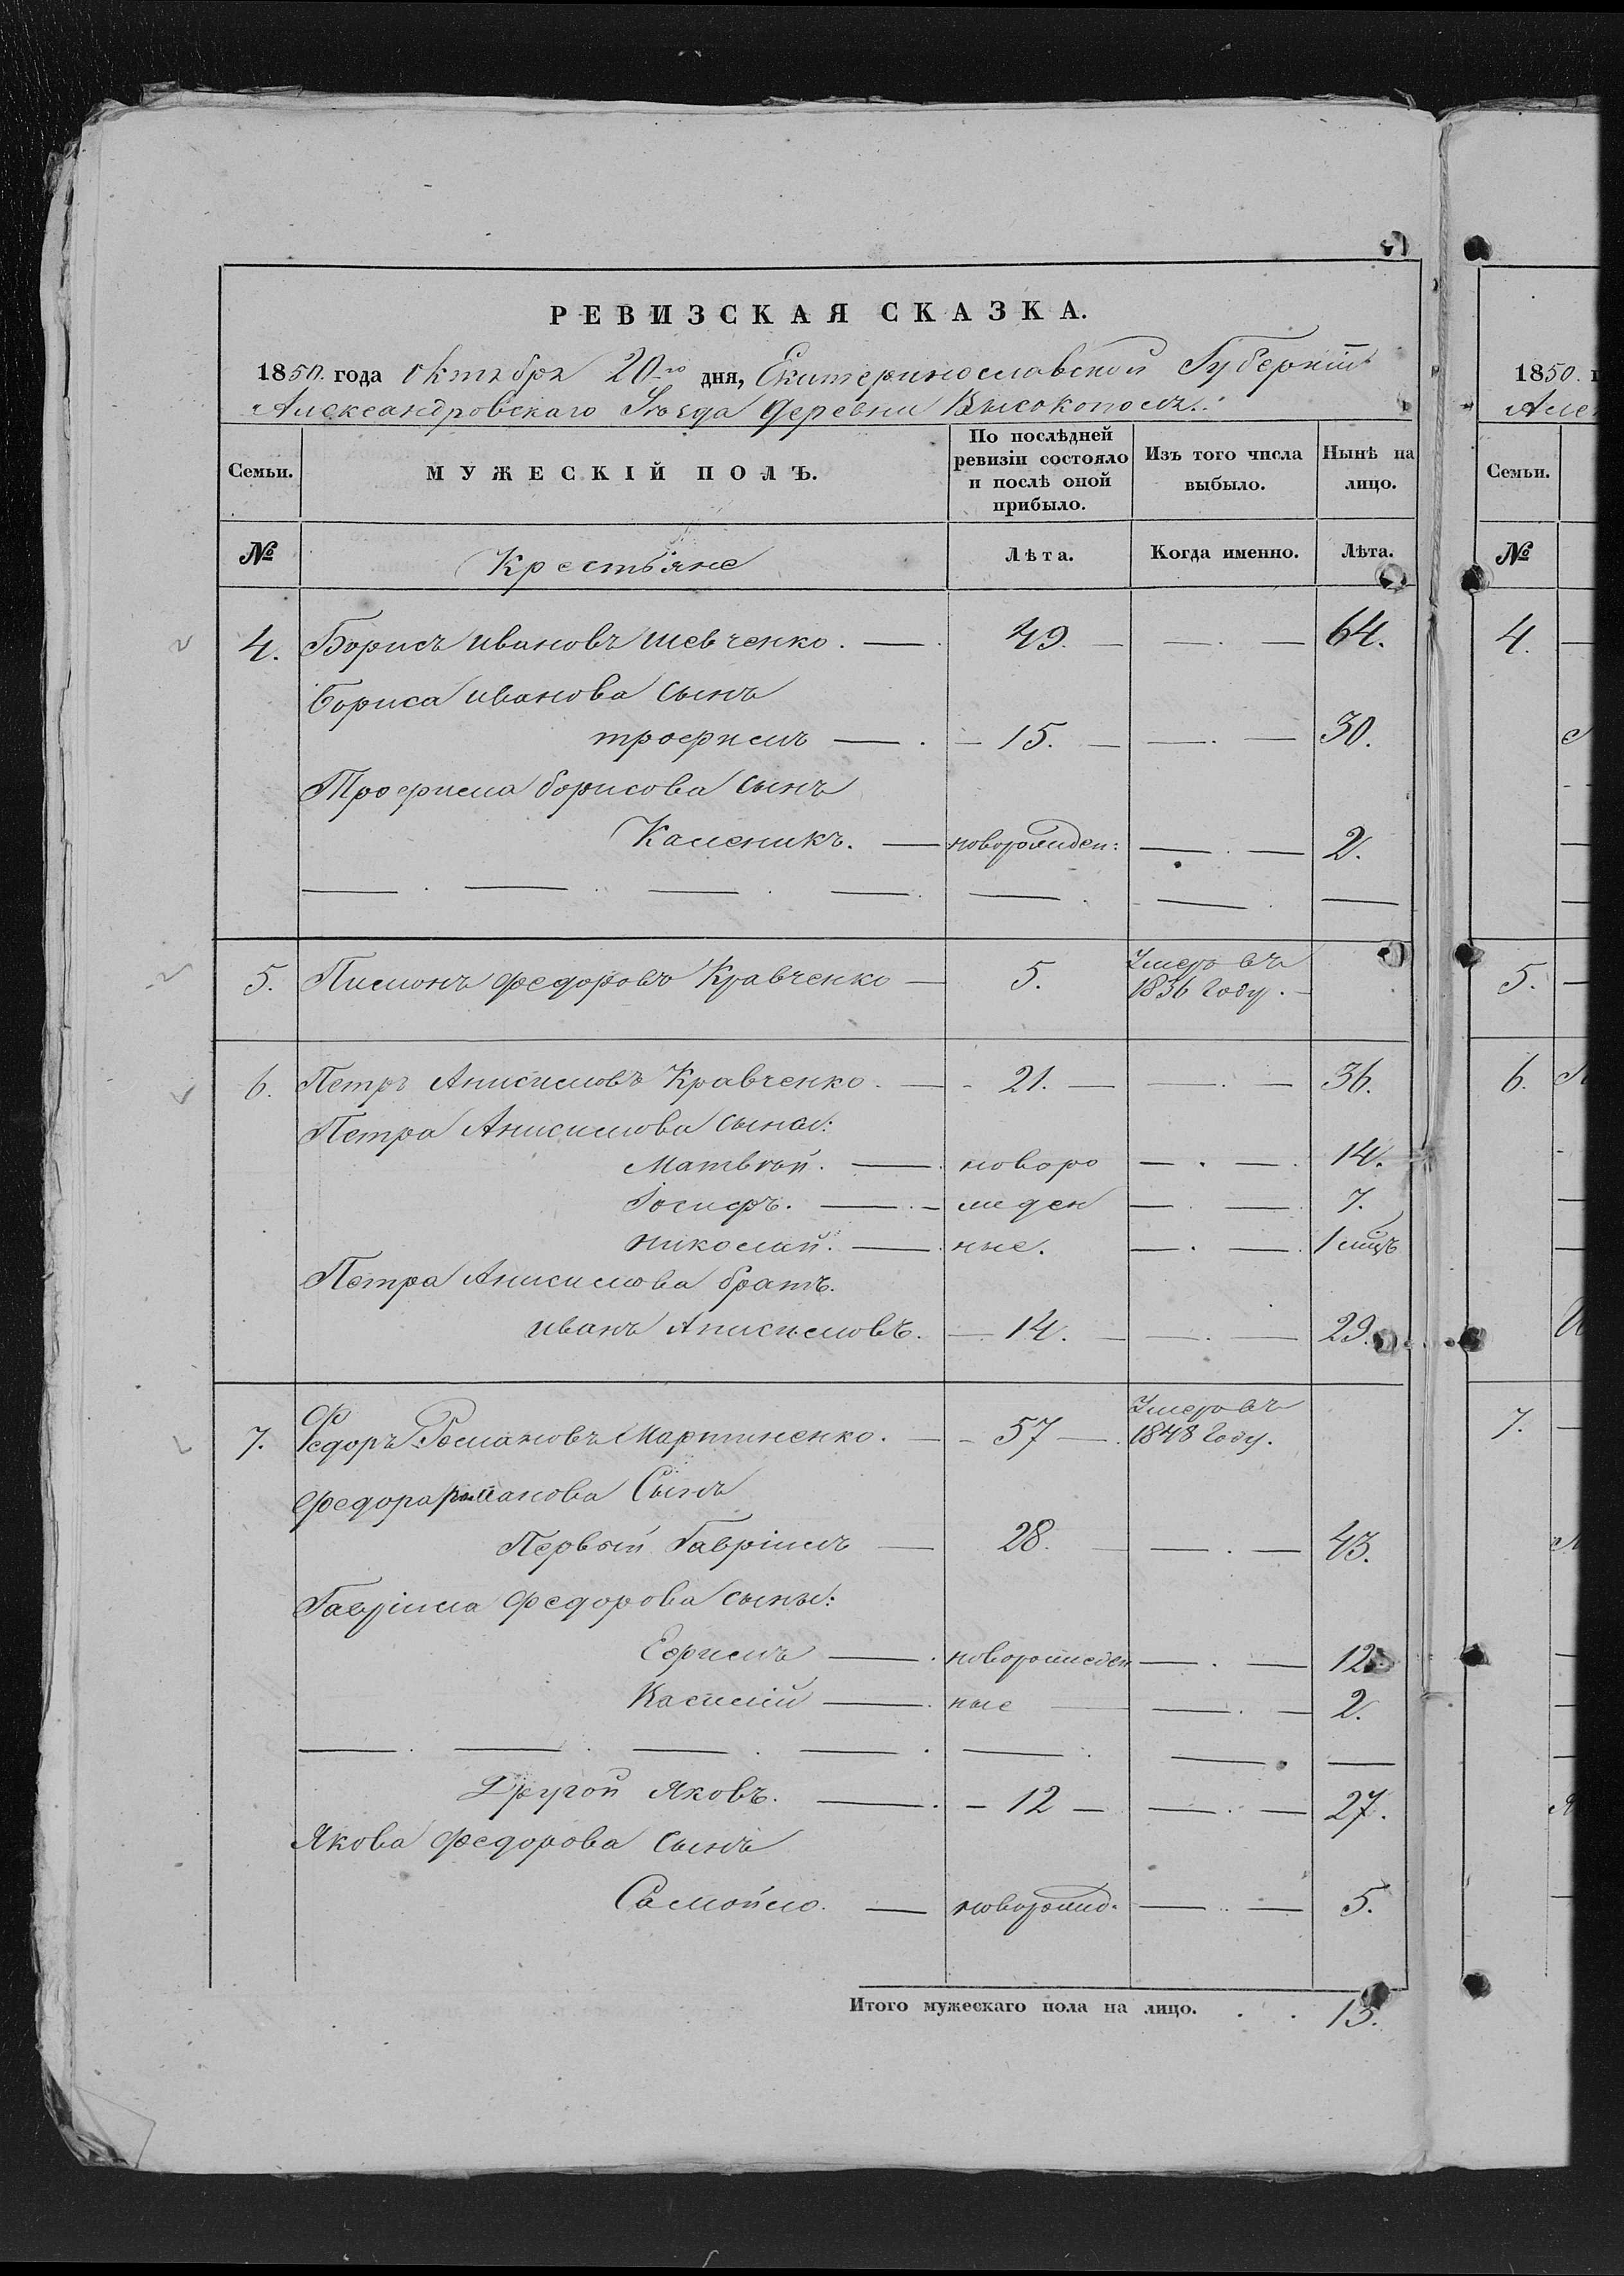 РЕВИЗСКАЯ СКАЗКА.
1850. года октября 20го дня, Екатеринославской Губерніи
Александровскаго Уезда деревни Высокополъ.
Семьи. МУЖЕСКІЙ ПОЛЪ. По послѣдней ревизіи состояло и послѣ оной прибыло. Изъ того числа выбыло. Нынѣ на лицо.
№ Крестьяне Лѣта. Когда именно. Лѣта.
4. Борисъ Ивановъ Шевченко. — 49. — — . — 64.
Бориса Иванова сынъ
трофимъ — . — 15. — — . — 30.
Трофима борисова сынъ
Каленикъ. — новорожден: — . — 2.
5. Пимонъ Федоровъ Кравченко — 5. Умеръ въ
1836 году. —
6. Петръ Анисимовъ Кравченко. — - 21. — — . — 36.
Петра Анисимова сыны:
Матвѣй. — . новоро — . — . 14.
Іосифъ. — . — жден — . — . 7.
Николай. — . ные. — . — . 1 мцъ
Петра Анисимова братъ.
иванъ Анисимовъ. — 14. — — . — 29.
7. Федоръ Романовъ Мартиненко. — - 57 — . Умеръ въ
1848 году.
Федора романова Сынъ
Первый Гавріилъ — 28. — — . — 43.
Гавріила Федорова сыны:
Ефимъ — . новорожден — . — 12.
Василій — . ные — — . — 2.
Другой Яковъ. — . — 12 — — . — 27.
Якова Федорова сынъ
Самойло. — новорожд. — .. — 5.
Итого мужескаго пола на лицо. . . 13.
1850. г
Але
Семьи.
№
4.
5.
6.
7.